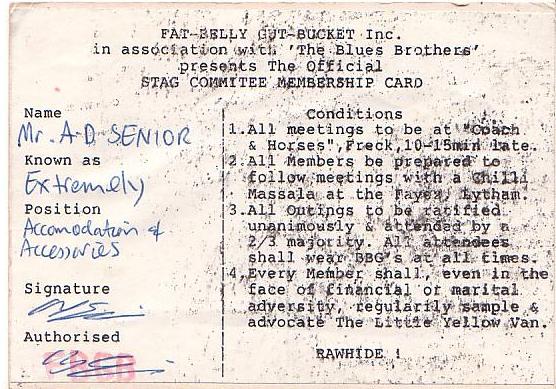 FAT-BELLY GUT-BUCKET Inc.
in association with 'The Blues Brothers'
presents The Official
STAG COMMITEE MEMBERSHIP CARD
Name
Mr. A-D SENIOR
Known as
Extremely
Position
Accomodation &
Accessories
Signature
Authorised
Conditions
1.All meetings to be at "Coach
& Horses",Freck,10-15min late.
2.All Members be prepared to
follow meetings with a Chilli
Massala at the Fayez, Lytham.
3.All Outings to be ratified
unanimously & attended by a
2/3 majority. All attendees
shall wear BBG's at all times.
4.Every Member shall, even in the
face of financial or marital
adversity, regularily sample &
advocate The Little Yellow Van.
RAWHIDE !